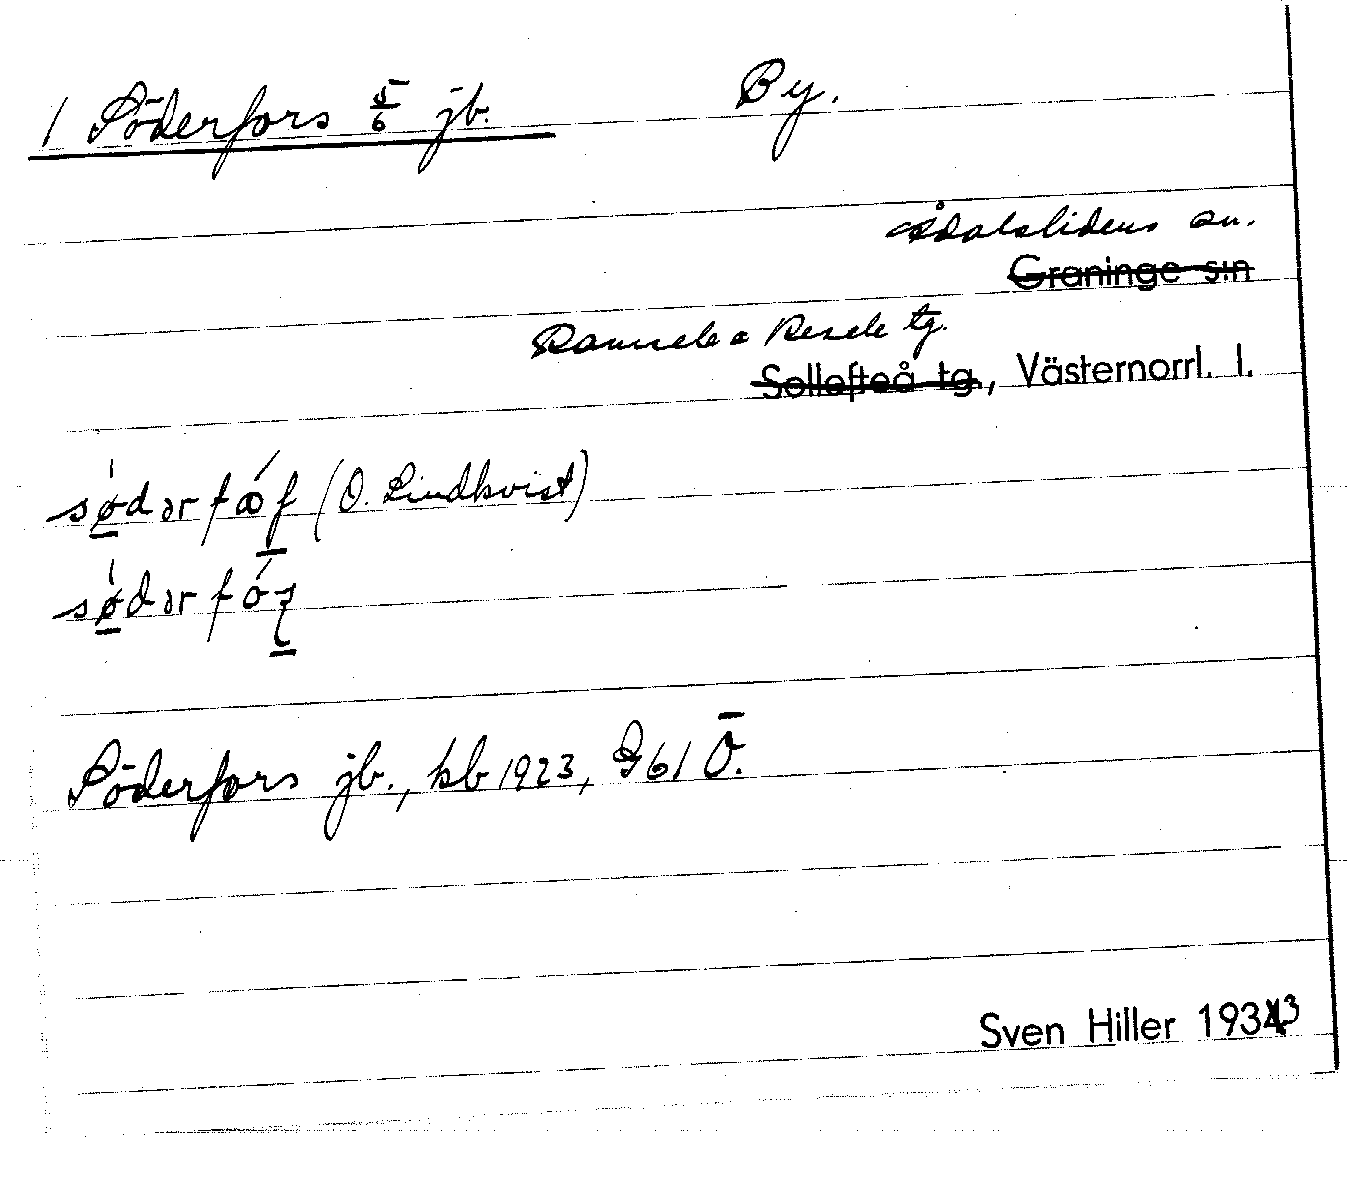 1 Söderfors 5/6 jb. By.
Ådalslidens sn.
Graninge s:n
Ramsele o Resele tg.
Sollefteå tg., Västernorrl. l.
sǿ̱dərfǽf̱ (O. Lindkvist)
sǿ̱dərfóʂ̱
Söderfors jb., kb 1923, G 61 Ö.
Sven Hiller 1933